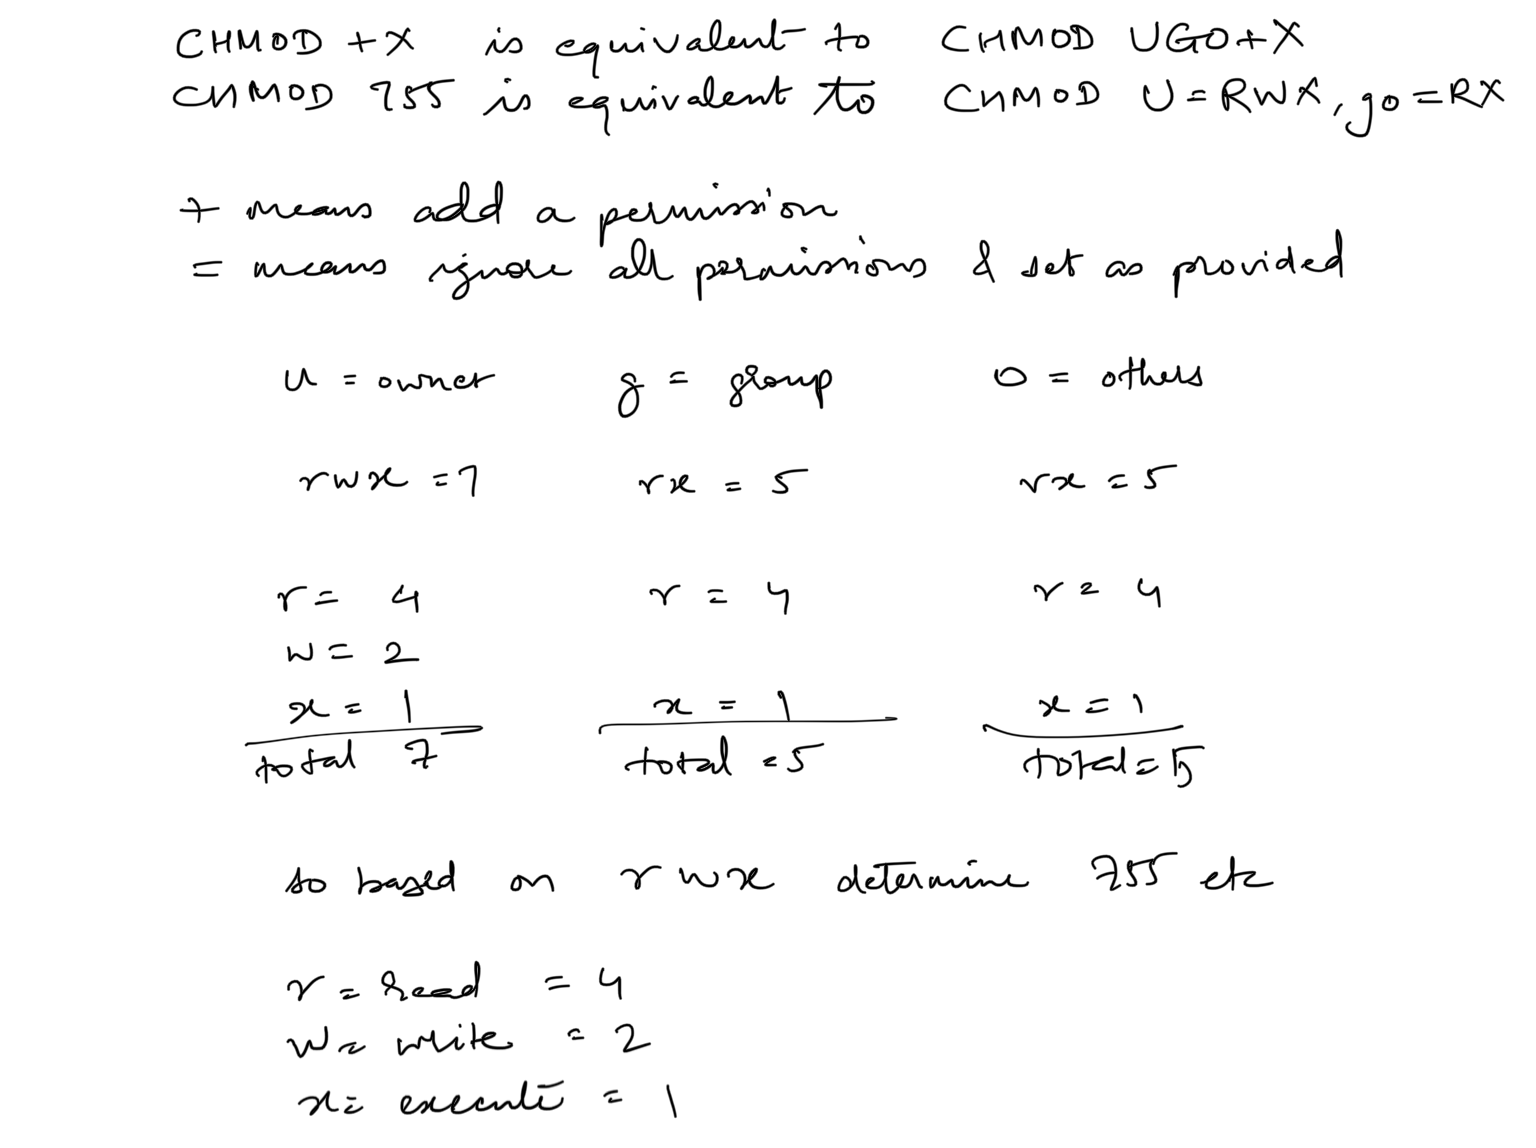 CHMOD +X is equivalent to CHMOD UGO+X
CHMOD 755 is equivalent to CHMOD U=RWX, go=RX
+ means add a permission
= means ignore all permissions & set as provided
u = owner g = group o = others
rwx = 7 rx = 5 rx = 5
r = 4 r = 4 r = 4
w = 2
x = 1 x = 1 x = 1
total 7 total = 5 total = 5
so based on rwx determine 755 etc
r = read = 4
w = write = 2
x = execute = 1